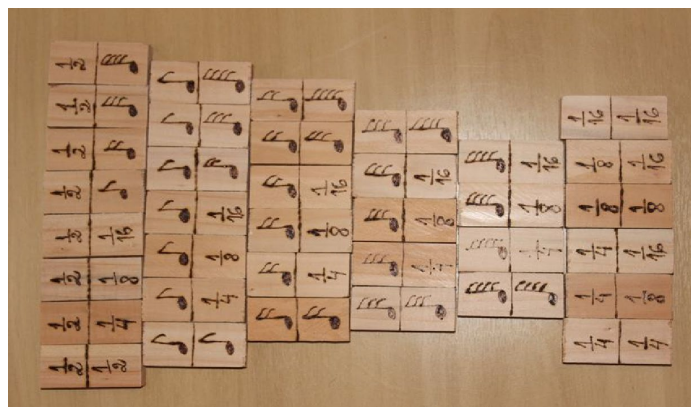 1/2
1/2
1/2
1/2
1/2 1/16
1/2 1/8
1/2 1/4
1/2 1/2
1/16
1/8
1/4
1/16
1/8
1/4
1/16
1/8
1/4
1/16
1/8
1/16 1/16
1/8 1/16
1/8 1/8
1/4 1/16
1/4 1/8
1/4 1/4